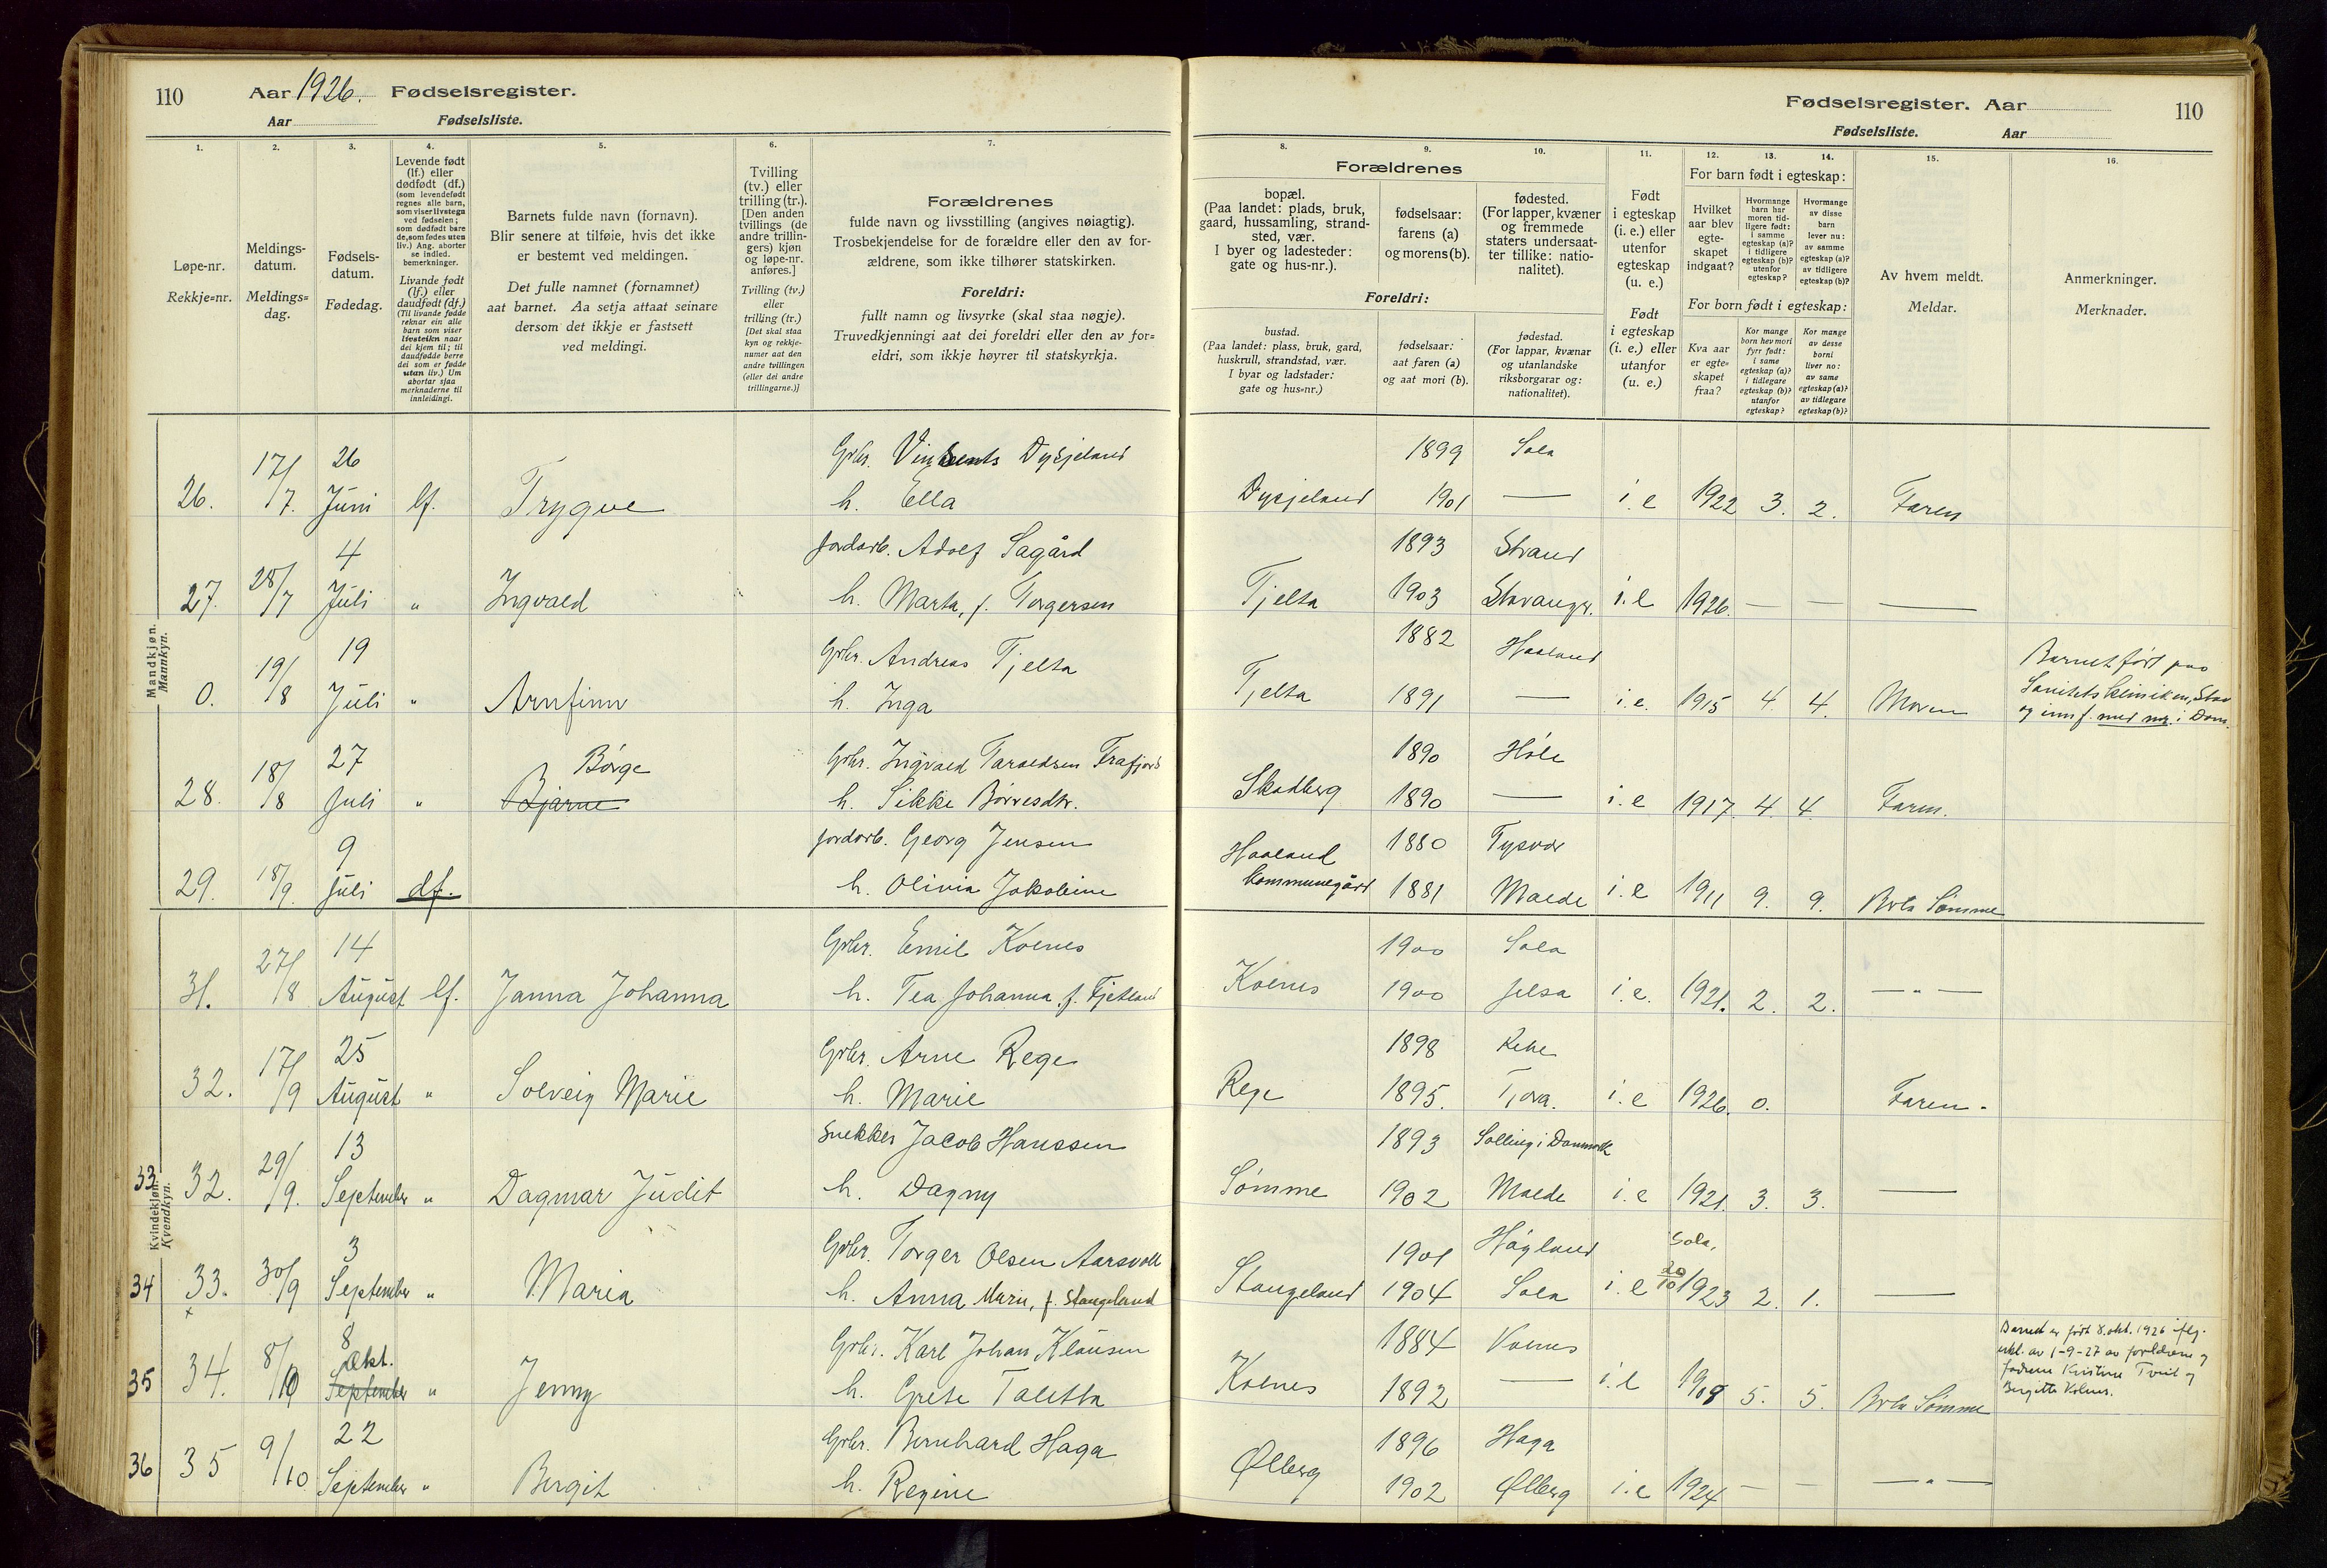 110 Aar 1926. Fødselsregister.
Aar Fødselsliste.
Fødselsregister. Aar 110
Fødselsliste. Aar
1. 2. 3. 4. 5. 6. 7.
Løpe-nr.
Rekkje=nr.
Meldings-
datum.
Meldings=
dag.
Fødsels-
datum.
Fødedag.
Levende født
(lf.) eller
dødfødt (df.)
(som levendefødt
regnes alle barn,
som viser livstegn
ved fødselen;
som dødfødt bare
de, som fødes uten
liv.) Ang. aborter
se indled.
bemerkninger.
Livande født
(lf.) eller
daudfødt (df.)
(Til livande fødde
reknar ein alle
barn som viser
livsteikn naar
dei kjem til; til
daudfødde berre
dei som er fødde
utan liv.) Um
abortar sjaa
merknaderne til
innleidingi.
Barnets fulde navn (fornavn).
Blir senere at tilføie, hvis det ikke
er bestemt ved meldingen.
Det fulle namnet (fornamnet)
aat barnet. Aa setja attaat seinare
dersom det ikkje er fastsett
ved meldingi.
Tvilling
(tv.) eller
trilling (tr.).
[Den anden
tvillings (de
andre trillin-
gers) kjøn
og løpe-nr.
anføres.]
Tvilling (tv.)
eller
trilling (tr.)
[Det skal staa
kyn og rekkje-
numer aat den
andre tvillingen
(eller dei andre
trillingarne.)]
Forældrenes
fulde navn og livsstilling (angives nøiagtig).
Trosbekjendelse for de forældre eller den av for-
ældrene, som ikke tilhører statskirken.
Foreldri:
fullt namn og livsyrke (skal staa nøgje).
Truvedkjenningi aat dei foreldri eller den av for=
eldri, som ikkje høyrer til statskyrkja.
8. 9. 10. 11. 12. 13. 14. 15. 16.
Forældrenes
bopæl.
(Paa landet: plads, bruk,
gaard, hussamling, strand-
sted, vær.
I byer og ladesteder:
gate og hus-nr.).
fødselsaar:
farens (a)
og morens (b).
fødested.
(For lapper, kvæner
og fremmede
staters undersaat-
ter tillike: natio-
nalitet).
Foreldri:
bustad.
(Paa landet: plass, bruk, gard,
huskrull, strandstad, vær.
I byar og ladstader:
gate og hus=nr.)
fødselsaar:
aat faren (a)
og aat mori (b).
fødestad.
(For lappar, kvænar
og utanlandske
riksborgarar og:
nationalitet).
Født
i egteskap
(i. e.) eller
utenfor
egteskap
(u. e.)
Født
i egteskap
(i. e.) eller
utanfor
(u. e.)
For barn født i egteskap:
Hvilket
aar blev
egte-
skapet
indgaat?
Hvormange
barn har
moren tid-
ligere født:
i samme
egteskap (a)?
i tidligere
egteskap (b)?
utenfor
egteskap?
Hvormange
av disse
barn
lever nu:
av samme
egteskap (a)?
av tidligere
egteskap (b)?
For born født i egteskap:
Kva aar
er egte-
skapet
fraa?
Kor mange
born hev mori
fyrr født:
i same
egteskap (a)?
i tidlegare
egteskap (b)?
utanfor
egteskap?
Kor mange
av desse
borni
liver no:
av same
egteskap (a)?
av tidlegare
egteskap (b)?
Av hvem meldt.
Meldar.
Anmerkninger.
Merknader.
Mandkjøn.
Mannkyn.
26. 17/7. 26 Juni lf. Trygve
Grbr. Dysjeland
h. Ella
Dysjeland 1899 Sola
1901 — i. e 1922 3. 2. Faren
27. 28/7 4 Juli " Ingvald
Jordarb. Adolf Sagård
h. Marta, f. Torgersen
Tjelta 1893 Strand
1903 Stavanger. i. e 1926. — — —
0. 19/8 19 Juli " Arnfinn
Grbr. Andreas Tjelta
h. Inga
Tjelta 1882 Haaland
1891 — i. e. 1915 4. 4. Moren
Barnet født paa
Sanitetsklinikken, Stav
og innf. med nr. i Dom.
28. 18/8 27 Juli " Børge
Bjarne
Grbr. Ingvald Taraldsen Frafjord
h. Sikke Børresdtr.
Skadberg 1890 Høle
1890 — i. e 1917. 4. 4. Faren.
29. 18/9. 9 Juli df.
Jordarb. Georg Jensen
h. Olivia Jakobine
Haaland
kommunegård
1880 Tysvær
1881 Malde i. e 1911 9. 9. Sømme
Kvindekjøn.
Kvendkyn.
31. 27/8 14 August lf. Janna Johanna
Grbr. Emil Kolnes
h. Tea Johanna f. Fjetland
Kolnes 1900 Sola
1900 Jelsa i. e. 1921. 2. 2. — " —
32. 17/9 25 August " Solveig Marie
Grbr. Arne Rege
h. Marie
Rege 1898
1895. Tjora. i. e 1926. 0. Faren.
33 32. 29/9. 13 September " Dagmar Judit
Snekker Jacob Hanssen
h. Dagny
Sømme 1893 Salling i Danmark
1902 Malde i. e 1921. 3. 3. —
34 33. 30/9 3 September " Maria
Grbr. Torger Olsen Aarsvoll
h. Anna Marie, f. Stangeland
Stangeland 1901 Høgland Sola,
1904 Sola i. e 20/10 1923 2. 1. —
35 34. 8/10 8 Okt.
September " Jenny
Grbr. Karl Johan Klausen
h. Grete Taletta
Kolnes 1884 Kolnes
1892 — i. e 1908 5. 5. Sømme
Barnet er født 8. okt. 1926 iflg.
erkl. av 1-9-27 av foreldrene og
fadrene Kristine Tveit og
Birgitte Kolnes.
36 35 9/10 22 September " Bergit
Grbr. Bernhard Haga
h. Regine
Ølberg 1896 Haga
1902 Ølberg i. e 1924 — — — " —